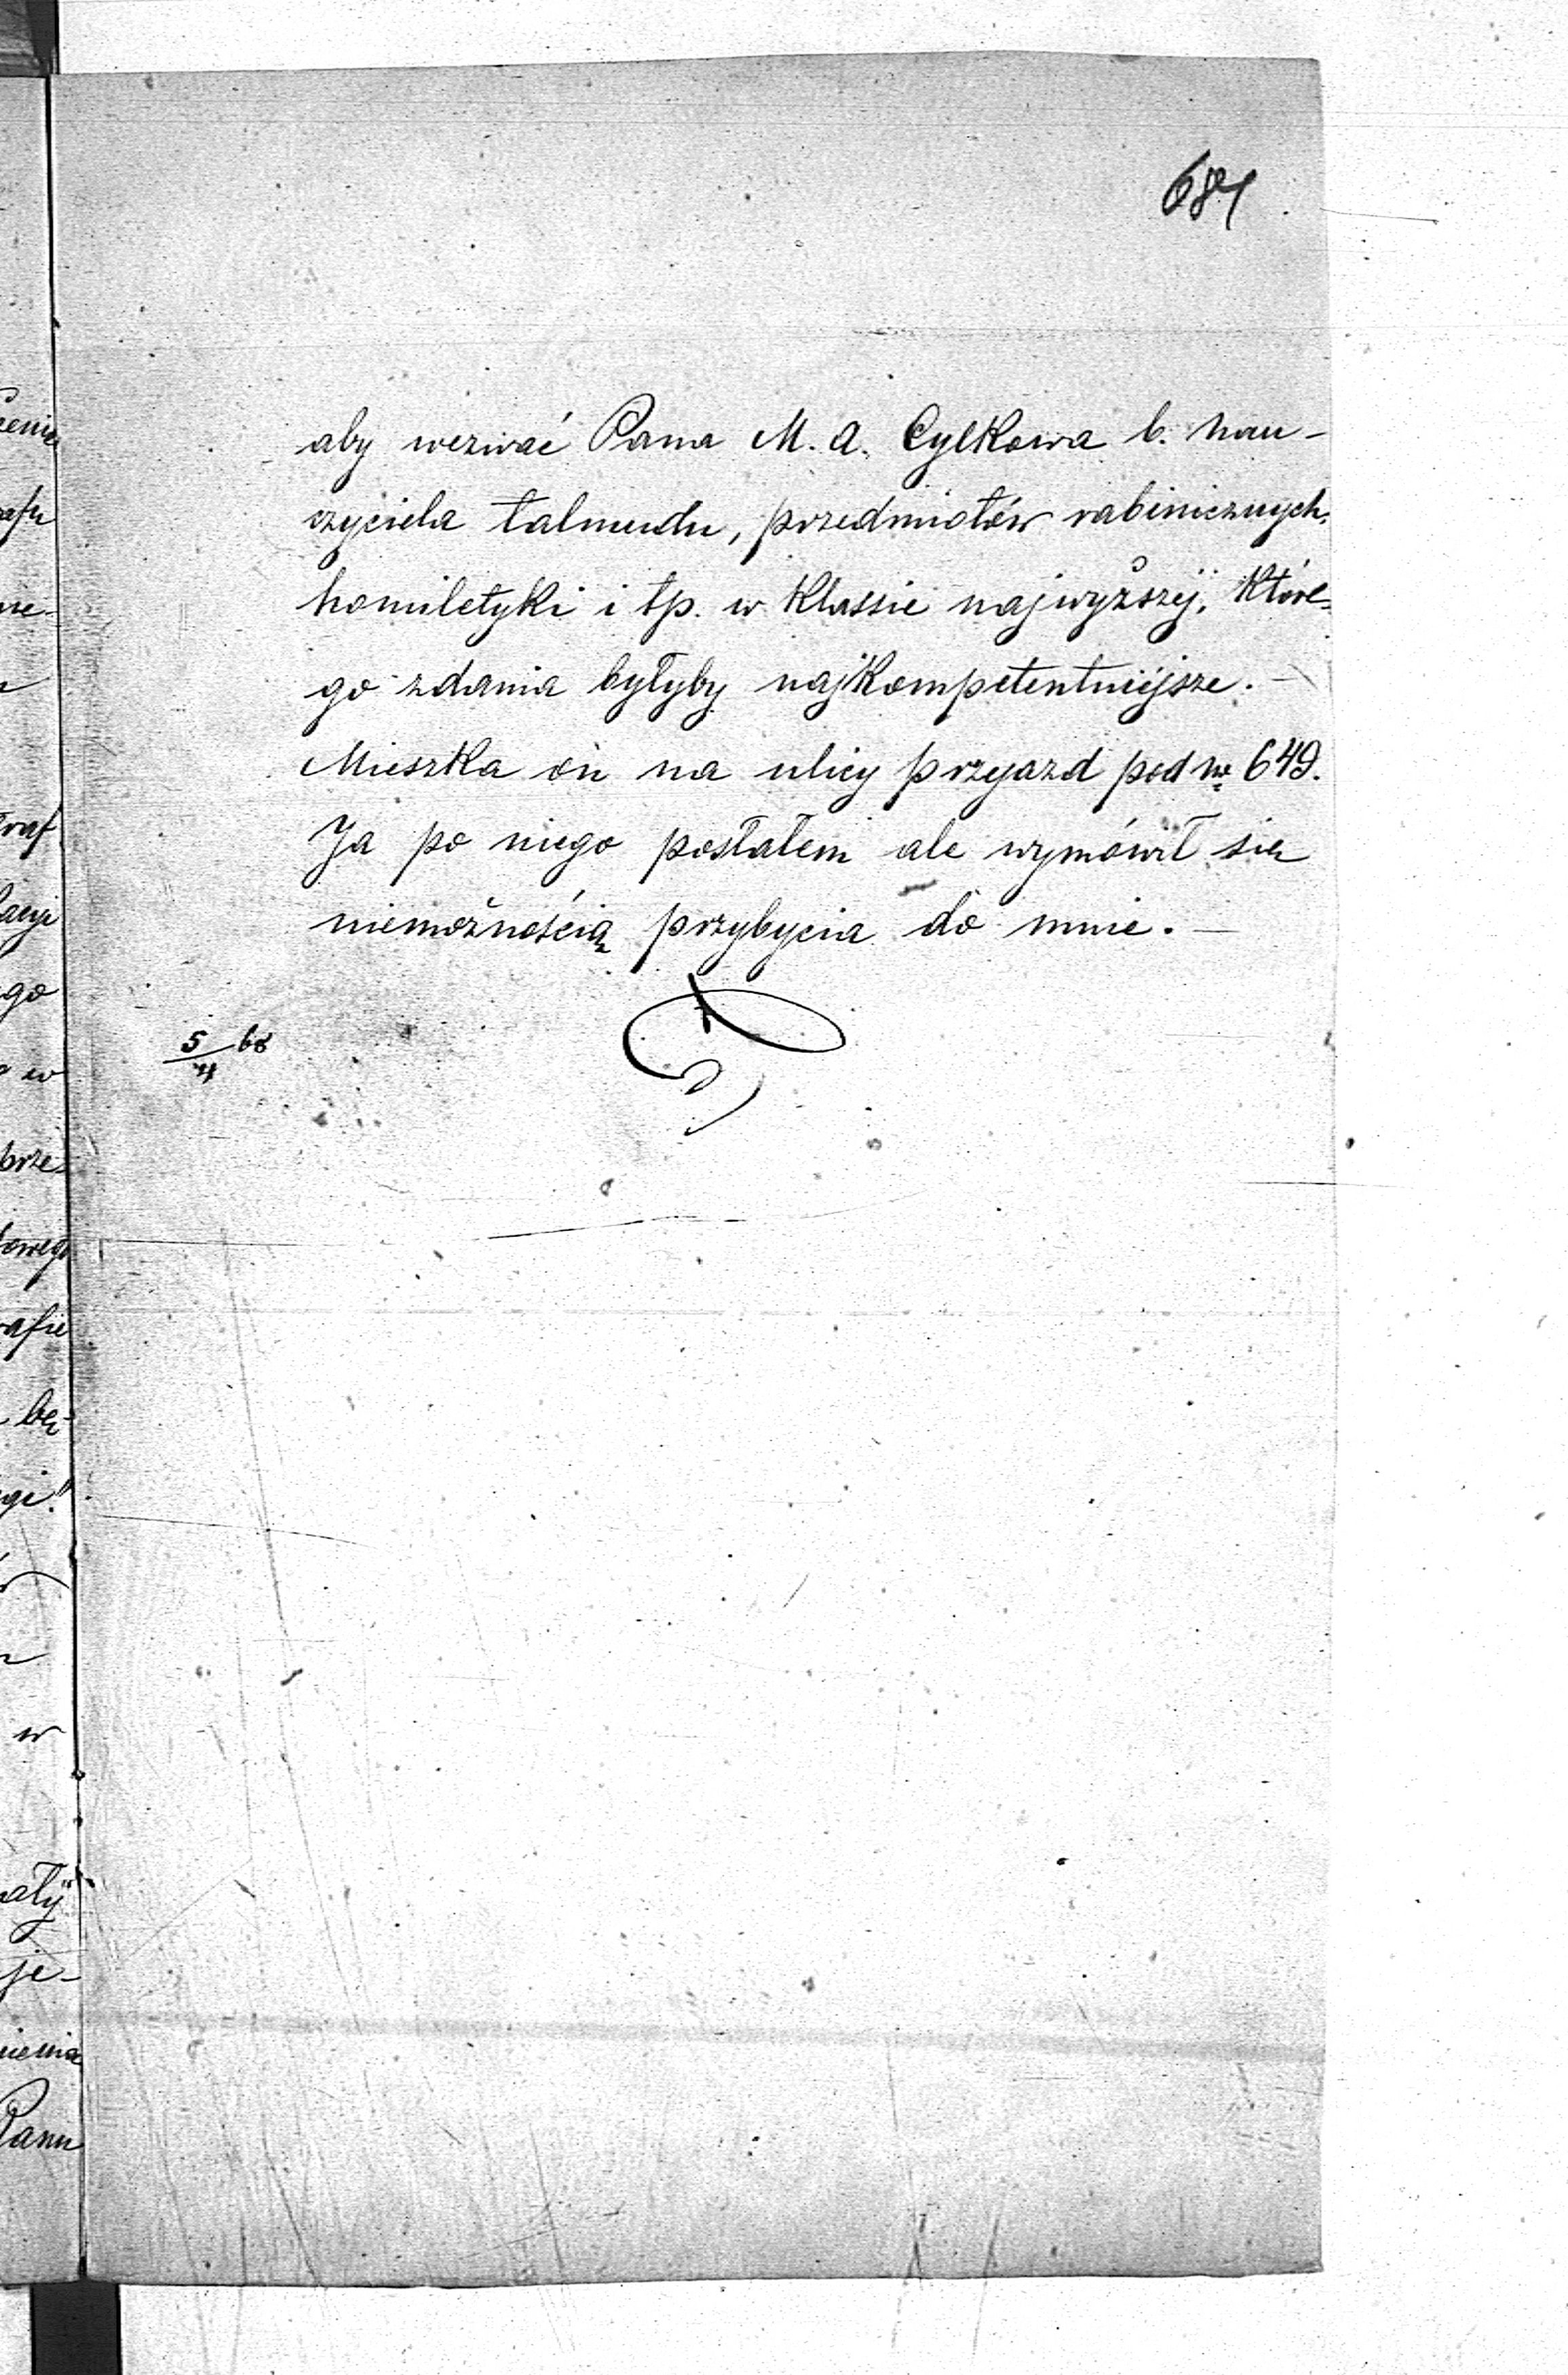 681
aby wezwać Pana M. A. Cylkowa b. nau-
czyciela talmudu, przedmiotów rabinicznych,
homiletyki i tp. w klassie najwyższej, które-
go zdania byłyby najkompetentniejsze. —
Mieszka on na ulicy przejazd pod No 649.
Ja po niego posłałem ale wymówił się
niemożnością przybycia do mnie. —
5/4 68